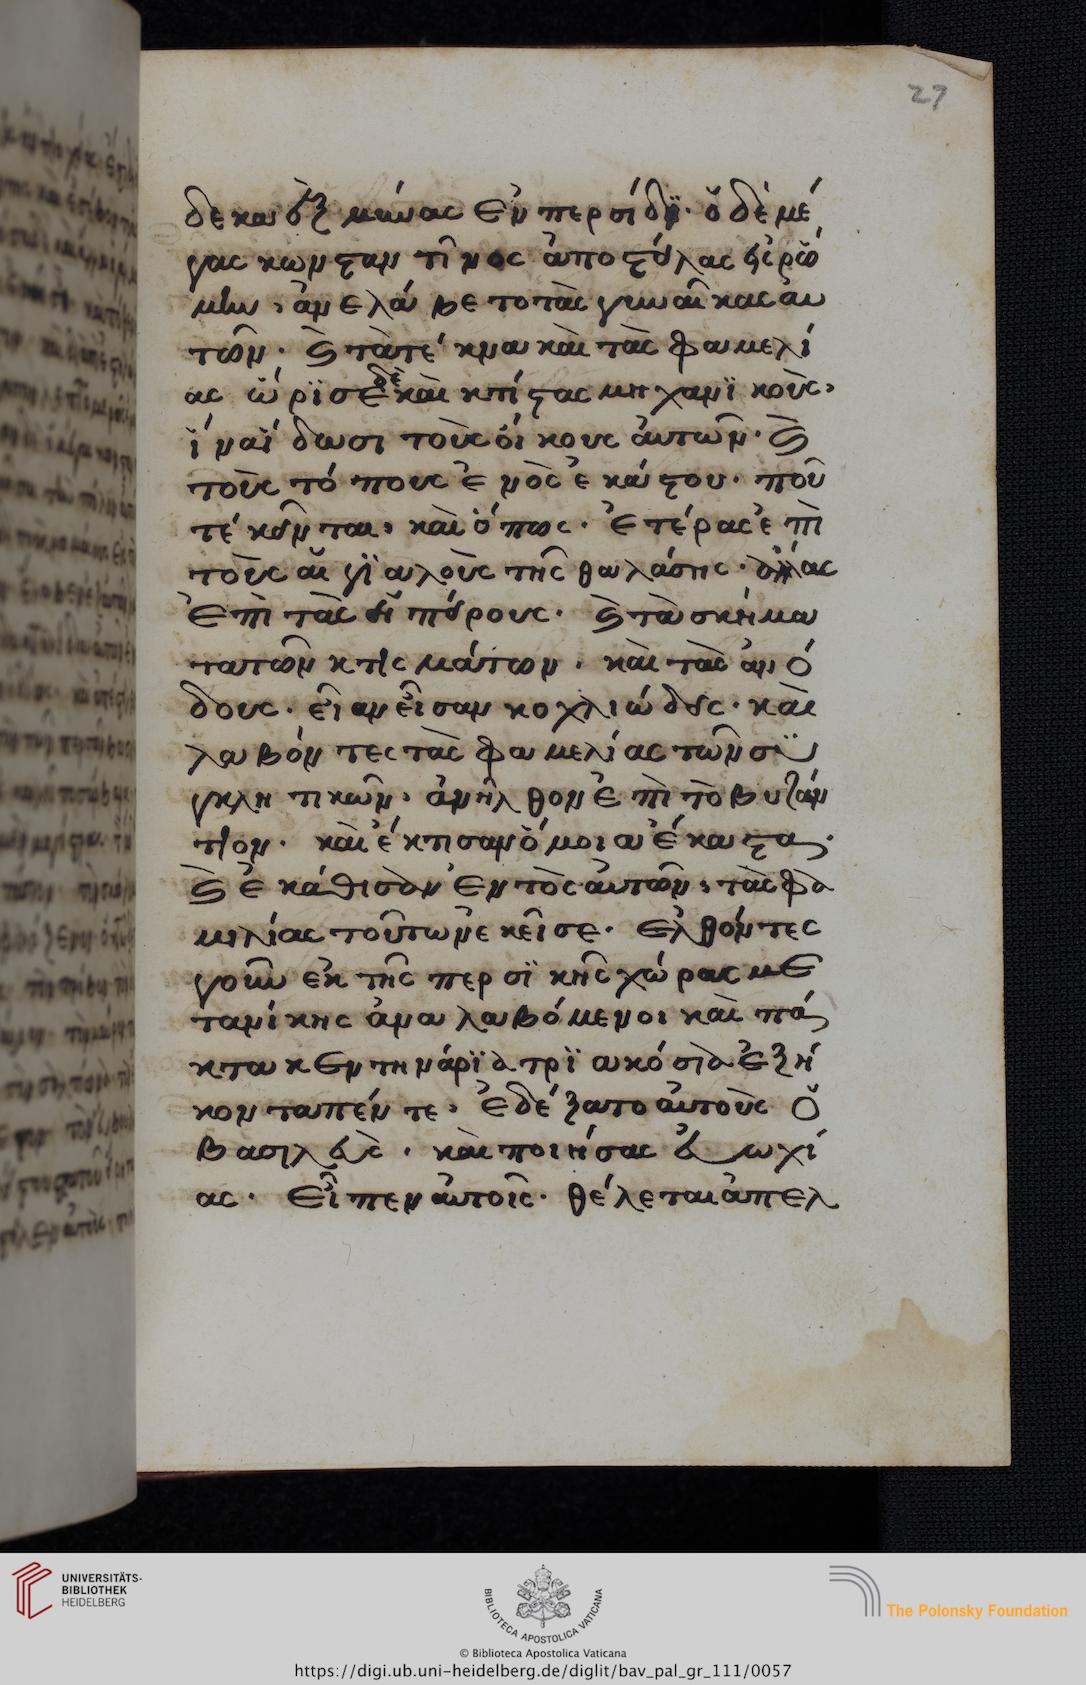 27
δεκαὲξ μήνας ἐν περσίδϊ· ὁ δὲ μέ
γας κωνσταντῖνος ἀποστείλας
ἀνελάβετο τὰς γυναῖκας αὐ
τῶν· καὶ τὰ τέκνα καὶ τὰς φαμελί
ας ὥρϊσε δὲ καὶ κτίστας μηχανϊκοὺς,
ἵνα ἴδωσι τοὺς οἴκους αὐτῶν· καὶ
τοὺς τόπους ἑνὸς ἑκάστου· ποῦ
τέ κεῖνται, καὶ ὅπως· ἑτέρας ἐπὶ
τοὺς αἰγϊαλοὺς τῆς θαλάσσης· ἄλλας
ἐπὶ τὰς ἠπείρους· καὶ τὰ σχήμα
τα τῶν κτισμάτων· καὶ τὰς ἀνό
δους· εἰ ἀνεῖσαν κοχλιώδεις· καὶ
λαβόντες τὰς φαμελίας τῶν σϋ
γκλητικῶν· ἀνῆλθον ἐπὶ τὸ βυζάν
τιον· καὶ ἔκτισαν ὅμοια ἕκαστα·
καὶ ἐκάθισαν ἐντὸς αὐτῶν, τὰς φα
μιλίας τούτων ἐκεῖσε· ἐλθόντες
γοῦν ἐκ τῆς περσϊκῆς χώρας με
τὰ νίκης ἅμα λαβόμενοι καὶ πά
κτα κεντηνάρϊα τρϊακόσια ἑξή
κοντα πέντε, ἐδέξατο αὐτοὺς ὁ
βασιλεὺς· καὶ ποιήσας εὐωχί
ας· εἶπεν αὐτοῖς· θέλεται ἀπελ
UNIVERSITÄTS-
BIBLIOTHEK
HEIDELBERG
BIBLIOTECA APOSTOLICA VATICANA
The Polonsky Foundation
© Biblioteca Apostolica Vaticana
https://digi.ub.uni-heidelberg.de/diglit/bav_pal_gr_111/0057